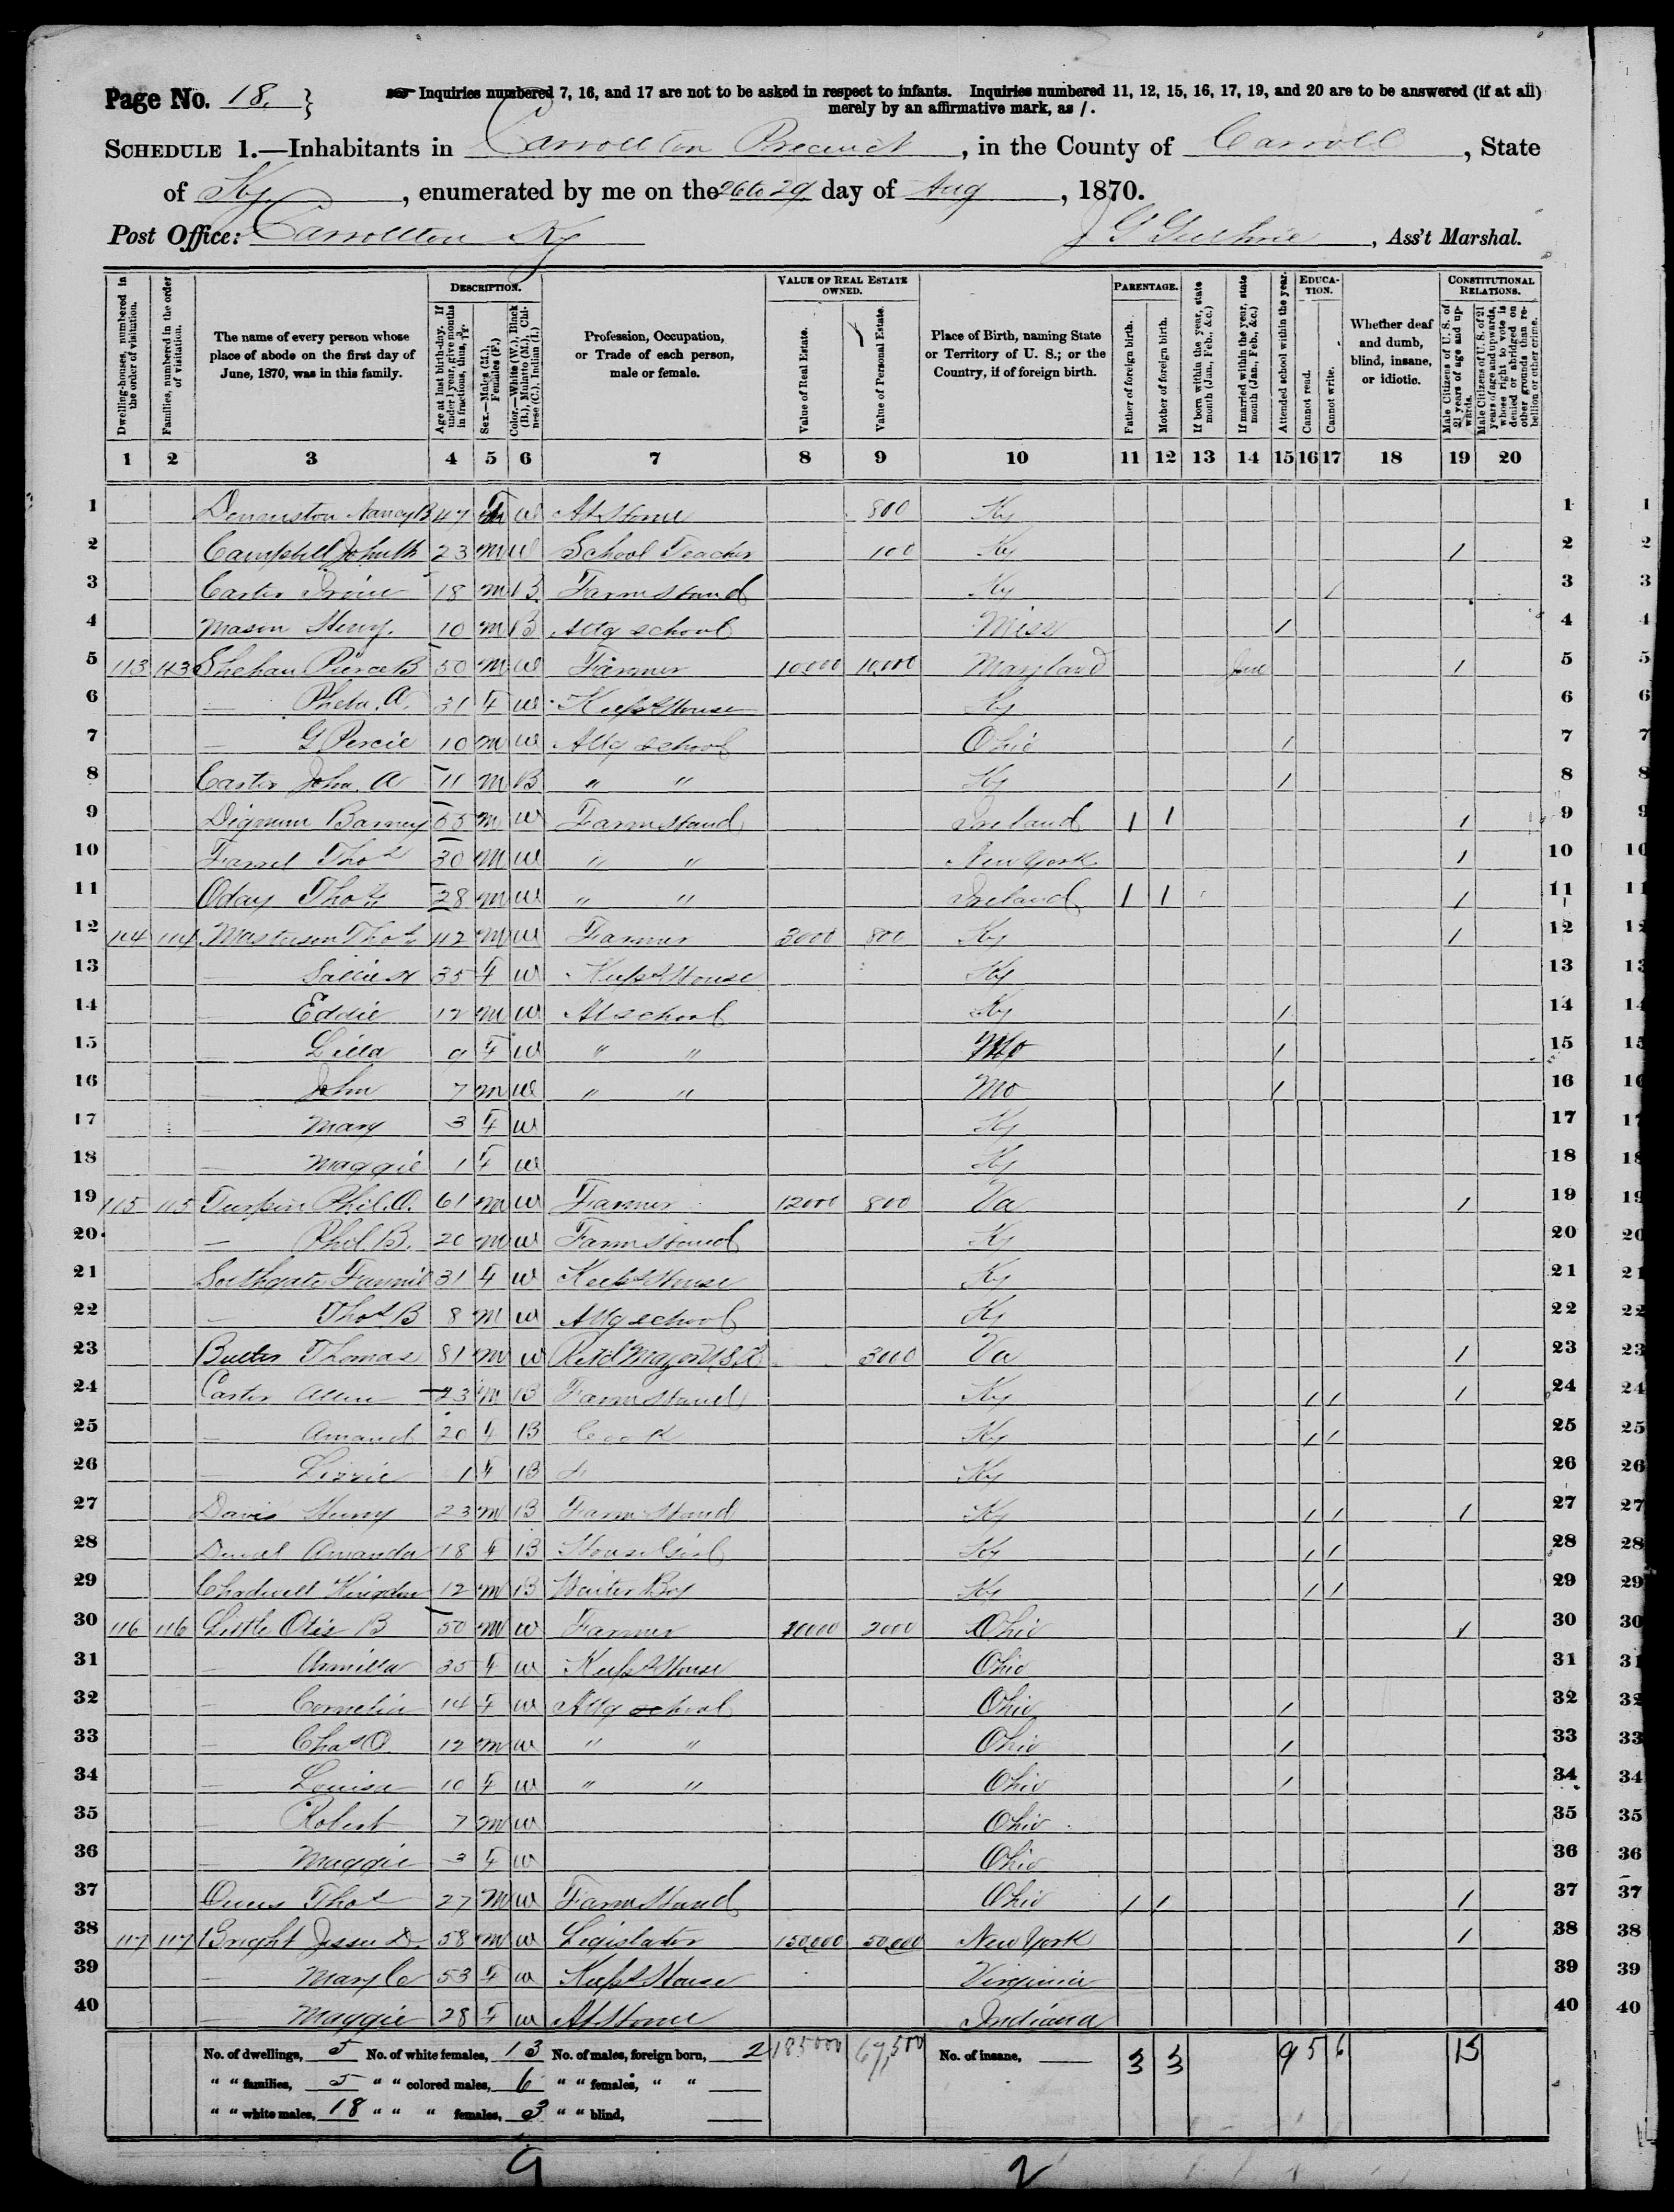 Page No. 18.
Inquiries numbered 7, 16, and 17 are not to be asked in respect to infants. Inquiries numbered 11, 12, 15, 16, 17, 19, and 20 are to be answered (if at all)
merely by an affirmative mark, as /.
SCHEDULE 1.—Inhabitants in Carrollton Precinct, in the County of Carroll, State
of Ky, enumerated by me on the 26 to 29 day of Aug, 1870.
Post Office: Carrollton Ky
J G Guthrie, Ass't Marshal.
Dwelling-houses, numbered in the order of visitation.
Families, numbered in the order of visitation.
The name of every person whose place of abode on the first day of June, 1870, was in this family.
DESCRIPTION.
Age at last birth-day. If under 1 year, give months in fractions, thus, 3/12.
Sex.—Males (M.), Females (F.)
Color.—White (W.), Black (B.), Mulatto (M.), Chinese (C.), Indian (I.)
Profession, Occupation, or Trade of each person, male or female.
VALUE OF REAL ESTATE OWNED.
Value of Real Estate.
Value of Personal Estate.
Place of Birth, naming State or Territory of U. S.; or the Country, if of foreign birth.
PARENTAGE.
Father of foreign birth.
Mother of foreign birth.
If born within the year, state month (Jan., Feb., &c.)
If married within the year, state month (Jan., Feb., &c.)
Attended school within the year.
EDUCATION.
Cannot read.
Cannot write.
Whether deaf and dumb, blind, insane, or idiotic.
CONSTITUTIONAL RELATIONS.
Male Citizens of U. S. of 21 years of age and upwards.
Male Citizens of U. S. of 21 years of age and upwards, whose right to vote is denied or abridged on other grounds than rebellion or other crime.
1 2 3 4 5 6 7 8 9 10 11 12 13 14 15 16 17 18 19 20
1 Nancy B 47 F W At Home 800 Ky 1
2 Campbell 23 m W School Teacher 100 Ky / 2
3 Carter 18 m B Farm Hand Ky / 3
4 Mason Henry. 10 m B Attg school Miss / 4
5 113 113 Shehan Pierce B 50 m W Farmer 10,000 10,000 Maryland / 5
6 — A. 31 F W Keeps House Ky 6
7 — G Percie 10 m W Attg school Ohio / 7
8 Carter John. A 11 m B " " Ky / 8
9 Barney 55 m W Farm Hand Ireland / / / 9
10 Thos 30 m W " " New York / 10
11 Oday Thos 28 m W " " Ireland / / / 11
12 114 114 Masterson Thos 42 m W Farmer 3000 800 Ky / 12
13 — Sallie 35 F W Keeps House Ky 13
14 — Eddie 12 m W At school Ky / 14
15 — Lilla 9 F W " " Mo / 15
16 — John 7 m W " " Mo / 16
17 — Mary 3 F W Ky 17
18 — Maggie 1 F W Ky 18
19 115 115 Turpin Phil. O. 61 m W Farmer 12000 800 Va / 19
20 — Phil. B. 20 m W Farm Hand Ky 20
21 Southgate Fannie 31 F W Keeps House Ky 21
22 — Thos B 8 m W Attg school Ky 22
23 Butler Thomas 81 m W Retd Major U.S.A. 3000 Va / 23
24 Carter Allen 23 m B Farm Hand Ky / / / 24
25 — Amand 20 F B Cook Ky / / 25
26 — Lizzie 1 F B Ky 26
27 Davis Henry 23 m B Farm Hand Ky / / / 27
28 Amanda 18 F B House Girl Ky / / 28
29 12 m B Waiter Boy Ky / / 29
30 116 116 Little Otis B 50 m W Farmer 10000 3000 Ohio / 30
31 — Armilla 35 F W Keeps House Ohio 31
32 — Cornelia 14 F W Attg school Ohio / 32
33 — Chas O. 12 m W " " Ohio / 33
34 — Louisa 10 F W " " Ohio / 34
35 — Robert 7 m W Ohio 35
36 — Maggie 3 F W Ohio 36
37 Owens Thos 27 m W Farm Hand Ohio / / / 37
38 117 117 Bright Jesse D. 58 m W Legislator 150,000 50,000 New York / 38
39 — Mary C 53 F W Keeps House Virginia 39
40 — Maggie 28 F W At Home Indiana 40
No. of dwellings, 5 No. of white females, 13 No. of males, foreign born, 2 185000 67,500 No. of insane, — 3 3 9 5 6 15
" " families, 5 " " colored males, 6 " " females, " " —
" " white males, 18 " " " females, 3 " " blind, —
9 2